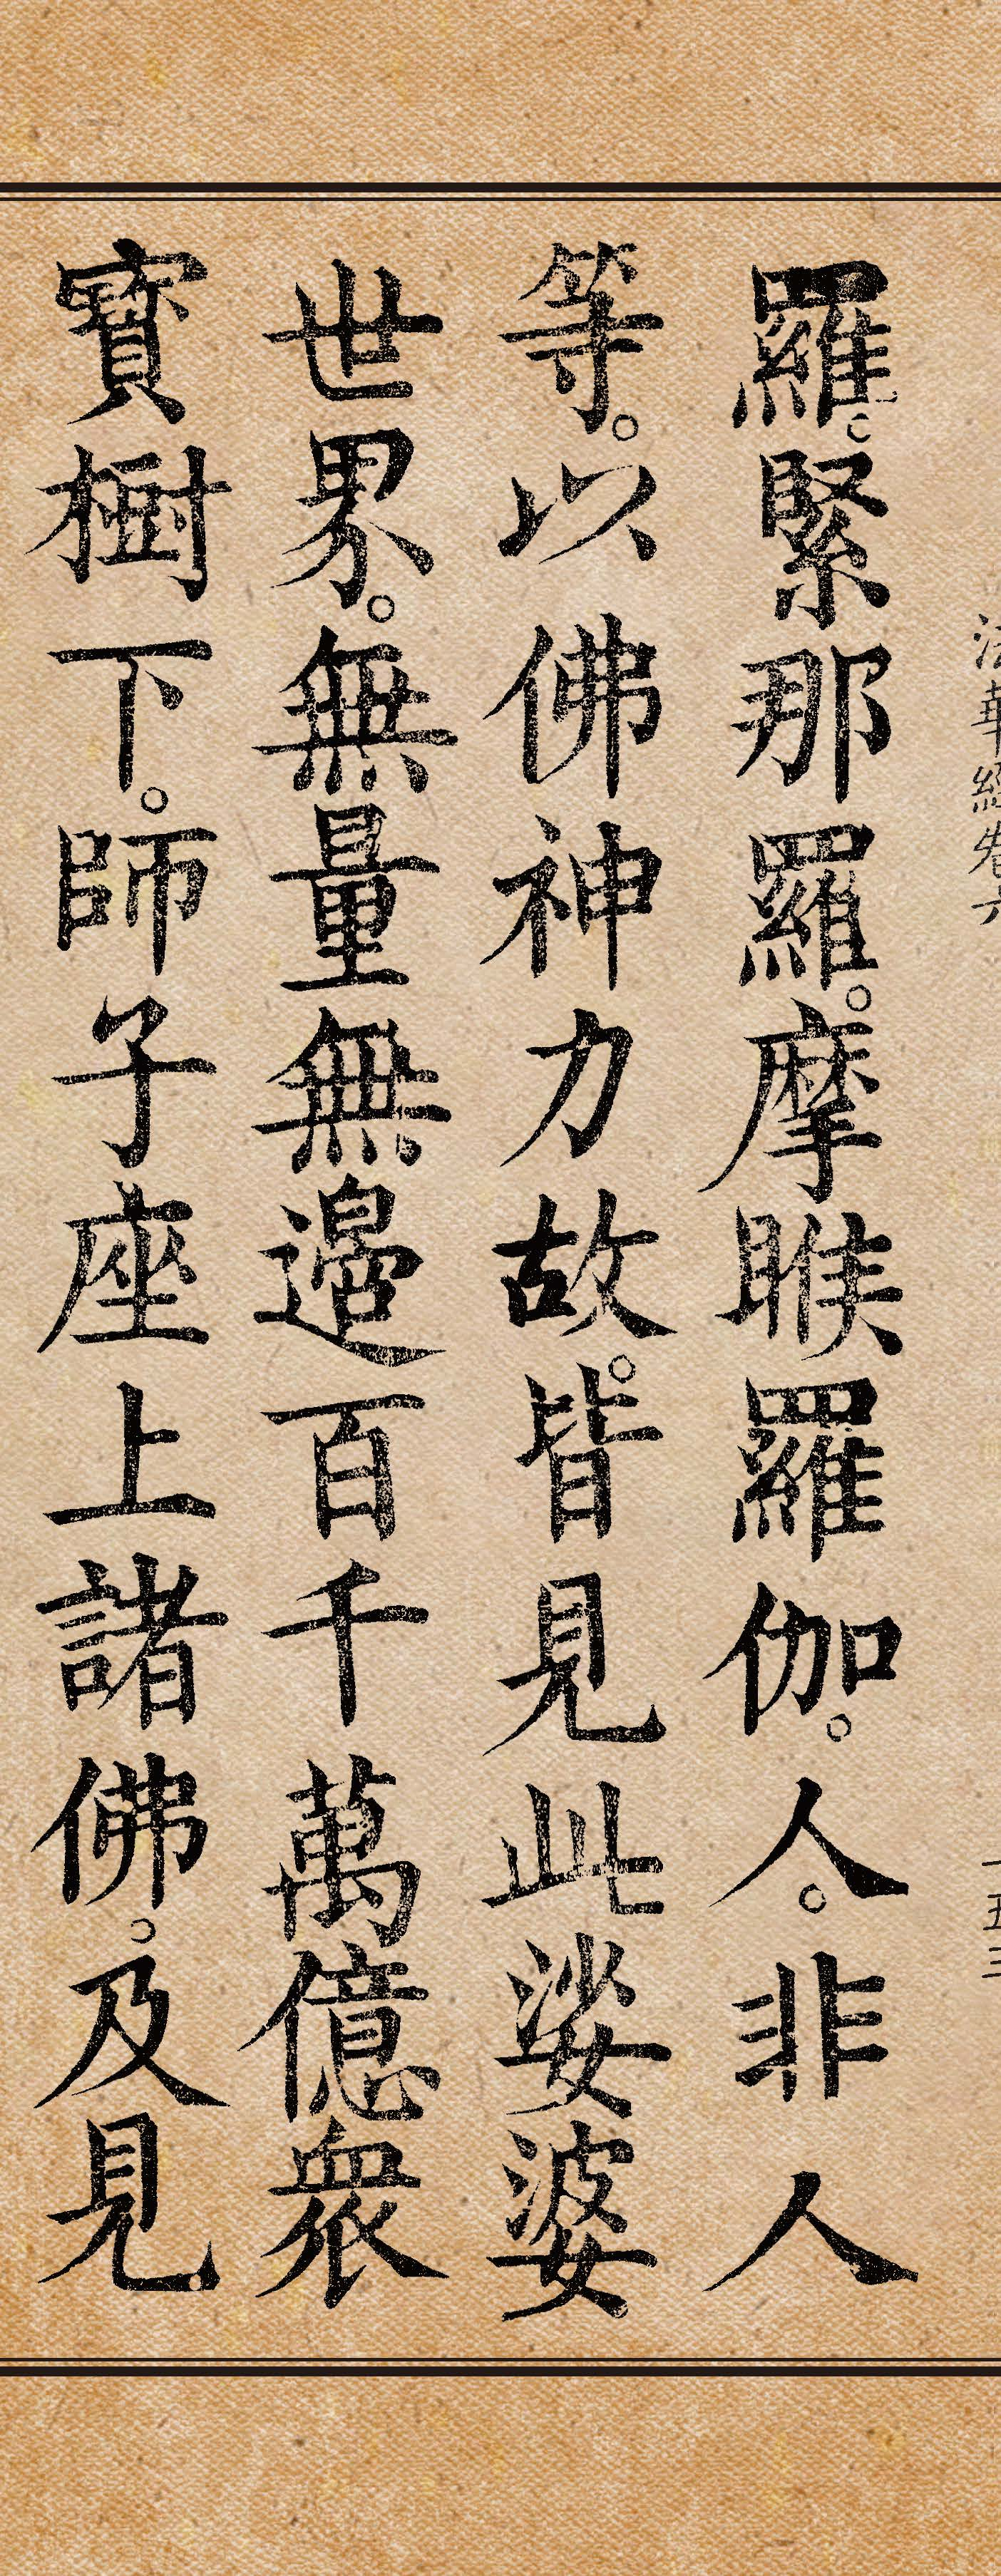 法華經卷六 一五三
羅。緊那羅。摩睺羅伽。人。非人
等。以佛神力故。皆見此娑婆
世界。無量無邊百千萬億衆
寶樹下。師子座上諸佛。及見